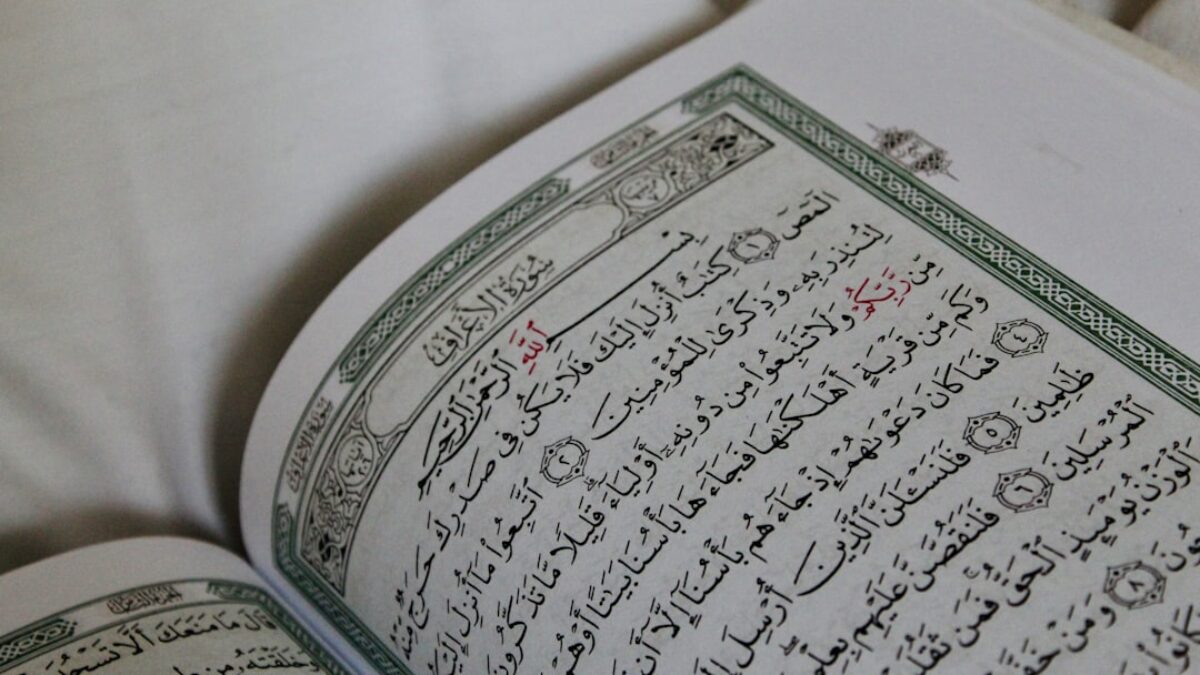 سُورَةُ الأَعْرَافِ
بِسْمِ ٱللَّهِ ٱلرَّحْمَٰنِ ٱلرَّحِيمِ
الٓمٓصٓ ١ كِتَٰبٌ أُنزِلَ إِلَيْكَ فَلَا يَكُن فِى صَدْرِكَ حَرَجٌ مِّنْهُ
لِتُنذِرَ بِهِۦ وَذِكْرَىٰ لِلْمُؤْمِنِينَ ٢ ٱتَّبِعُوا۟ مَآ أُنزِلَ
مِّن رَّبِّكُمْ وَلَا تَتَّبِعُوا۟ مِن دُونِهِۦٓ أَوْلِيَآءَ قَلِيلًا مَّا تَذَكَّرُونَ
وَكَم مِّن قَرْيَةٍ أَهْلَكْنَٰهَا فَجَآءَهَا بَأْسُنَا بَيَٰتًا أَوْ هُمْ
٤ فَمَا كَانَ دَعْوَىٰهُمْ إِذْ جَآءَهُم بَأْسُنَآ إِلَّآ أَن
ظَٰلِمِينَ ٥ فَلَنَسْـَٔلَنَّ ٱلَّذِينَ أُرْسِلَ
ٱلْمُرْسَلِينَ ٦ فَلَنَقُصَّنَّ عَلَيْهِم بِعِلْمٍ
وَٱلْوَزْنُ يَوْمَئِذٍ ٱلْحَقُّ فَمَن ثَقُلَتْ
٨ وَمَنْ خَفَّتْ
قَالَ مَا مَنَعَكَ أَلَّا تَسْجُدَ
خَلَقْتَهُۥ مِن